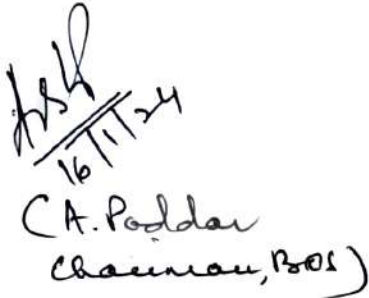 16/1/24
(A. Poddar
Chairman, BOS)